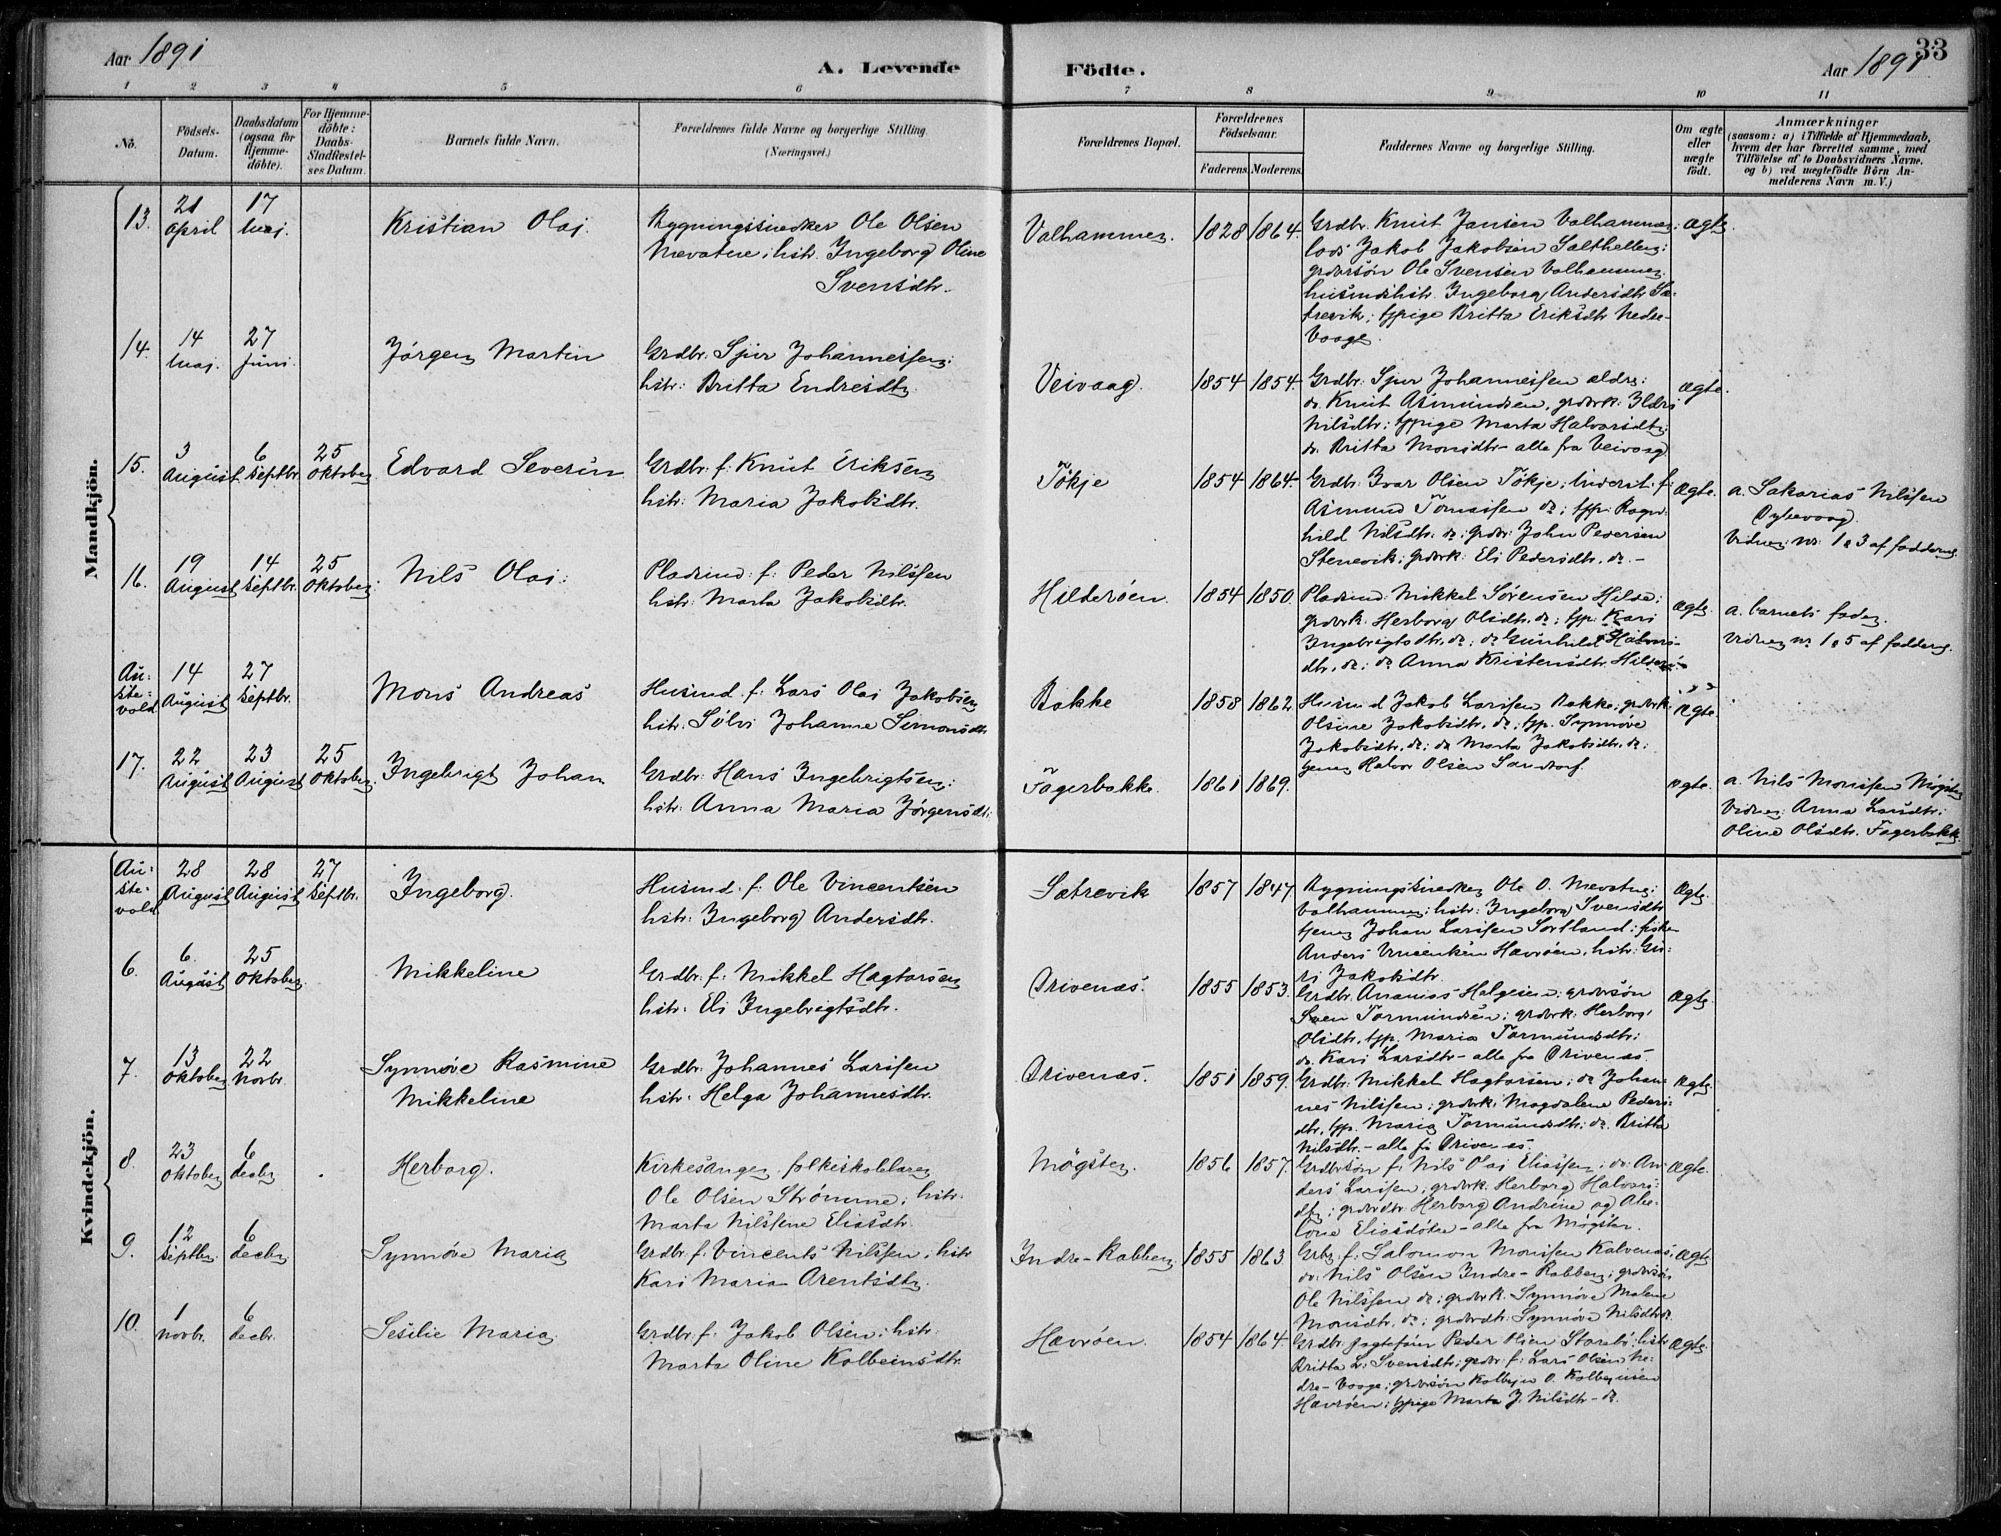 Aar 1891
A. Levende Födte.
Aar 1891
33
1 2 3 4 5 6 7 8 9 10 11
No.
Födsels-Datum.
Daabsdatum (ogsaa for Hjemme-döbte).
For Hjemme-döbte: Daabs-Stadfæstel-ses Datum.
Barnets fulde Navn.
Forældrenes fulde Navne og borgerlige Stilling. (Næringsvei.)
Forældrenes Bopæl.
Forældrenes Födselsaar.
Faderens. Moderens.
Faddernes Navne og borgerlige Stilling.
Om ægte eller uægte födt.
Anmærkninger
(saasom: a) i Tilfælde af Hjemmedaab,
hvem der har forrettet samme, med
Tilföielse af to Daabsvidners Navne,
og b) ved uægtefödte Börn An-
melderens Navn m.V.)
Mandkjön.
13. 21 April 17 Maj. Kristian Olai.
Bygningssnedker Ole Olsen
Mevatne; hstr. Ingeborg Oline
Svensdtr.
Valhammer. 1828 1864.
Grdbr. Knut Jansen Valhammer;
lods Jakob Jakobsen Salthellen;
grdbrsøn Ole Svensen Valhammer;
husmdshstr. Ingeborg Andersdtr. Sæ-
trevik; tjpige Britta Eriksdtr Nedre-
Vaage.
Ægte.
14. 14 Maj. 27 Juni. Jørgen Martin
Grdbr. Sjur Johannessen;
hstr: Britta Endresdtr.
Veivaag. 1854 1854.
Grdbr: Sjur Johannessen ældre;
do. Knut Asmundsen, grdbrk:
Nilsdtr; tjpige Marta Halvorsdtr;
do. Britta Monsdtr - alle fra Veivaag
ægte.
15. 3 August 6 Septbr. 25 Oktober Edvard Severin
Grdbr: f: Knut Eriksen
hstr: Maria Jakobsdtr.
Tøkje 1854 1864
Grdbr Ivar Olsen Tøkje; f:
Asmund Tomassen do; tjp: Ragn-
hild Nilsdtr. do; grdbr: John Pedersen
Stenevik; grdbrk: Eli Pedersdtr. do. -
Ægte.
a. Sakarias Nilssen
Dybevaag.
Vidner nr: 1 & 3 af fadderne
16. 19 August 14 Septbr. 25 Oktober. Nils Olai.
Pladsmd: f: Peder Nilssen
hstr: Marta Jakobsdtr.
Hilderøen. 1854 1850.
Pladsmd: Mikkel Sørensen Hilde;
grdbrk. Herborg Olsdtr. do; tjp: Kari
Ingebrigtsdtr, do; do Gunhild Halvors-
dtr, do; do Anna Kristensdtr.
Ægte.
a. barnets fader.
Vidner nr 1 & 5 af fadderne.
Au-
ste-
vold 14 August 27 Septbr. Mons Andreas
Husmd. f: Lars Olai Jakobsen
hstr. Sølvi Johanne Simonsdtr
Bakke 1858 1862
Husmd Jakob Larssen Bakke; grdbrk.
Olsine Jakobsdtr. do; tjp. Synnøve
Jakobsdtr. do; do Marta Jakobsdtr. do;
tjener Halvor Olsen
Ægte.
17. 22 August 23 August 25 Oktober. Ingebrigt Johan
Grdbr: Hans Ingebrigtsen;
hstr: Anna Maria Jørgensdtr.
Fagerbakke. 1861 1869.
ægte.
a. Nils Monssen Møgster
Vidner: Anna Larsdtr;
Oline Olsdtr. Fagerbakk
Kvindekjön.
Au-
ste-
vold 28 August 28 August 27 Septbr. Ingeborg.
Husmd. f: Ole Vincentsen
hstr: Ingeborg Andersdtr.
Sætrevik 1857 1847
Bygningssnedker Ole O. Mevatne;
Valhammer; hstr: Ingeborg Svensdtr
tjener Johan Larssen Sortland; fisker
Anders Vincentsen Havrøen, hstr: Gu-
ri Jakobsdtr.
Ægte.
6. 6. August 25 Oktober Mikkeline
Grdbr: f: Mikkel Hagtorsen
hstr: Eli Ingebrigtsdtr.
Drivenæs. 1855 1853.
Grdbr. Ananias Helgesen; grdbrsøn
Sven Tormundsen; grdbrk: Herborg
Olsdtr, tjp. Maria Tormundsdtr;
do. Kari Larsdtr - alle fra Drivenæs.
Ægte.
7. 13 Oktober 22 Novbr. Synnøve Rasmine
Mikkeline
Grdbr: Johannes Larssen
hstr: Helga Johannesdtr.
Drivenæs. 1851 1859.
Grdbr. Mikkel Hagtorsen; do Johan-
nes Nilssen; grdbrk: Magdalene Peders-
dtr, tjp. Maria Tormundsdtr; do. Britta
Nilsdtr. - alle fr. Drivenæs.
Ægte
8. 23 Oktober 6 decbr Herborg.
Kirkesanger, folkeskolelærer
Ole Olsen Strømme; hstr.
Marta Nilsine Eliasdtr.
Møgster. 1856 1857.
Grdbrsøn f: Nils Olai Eliassen; do: An-
ders Larssen; grdbrk: Herborg Halvors-
dtr; grdbrdtr Herborg Andrine og Abe-
lone Eliasdøtre - alle fra Møgster.
Ægte.
9. 12 Septbr. 6 decbr Synnøve Maria
Grdbr: f: Vincents Nilssen; hstr
Kari Maria Arentsdtr.
Indre-Rabben. 1855 1863.
Grbr. f: Salomon Monssen Kalvenæs;
do: Nils Olsen Indre-Rabben; grdbrsøn
Ole Nilssen do; grdbrk. Synnøve Malene
Monsdtr, do; grdbrdtr: Synnøve Nilsdtr do.
Ægte
10. 1 Novbr. 6 decbr. Sesilie Maria
Grdbr: f: Jakob Olsen; hstr.
Marta Oline Kolbeinsdtr.
Havrøen. 1854 1864.
Grdbr. Peder Olsen Storebø; hstr
Britta L. Svensdtr; grdbr: f: Lars Olsen Ne-
dre-Vaage; grdbrsøn Kolbejn O. Kolbejnsen
Havrøen; tjpige Marta J. Nilsdtr - do.
Ægte.